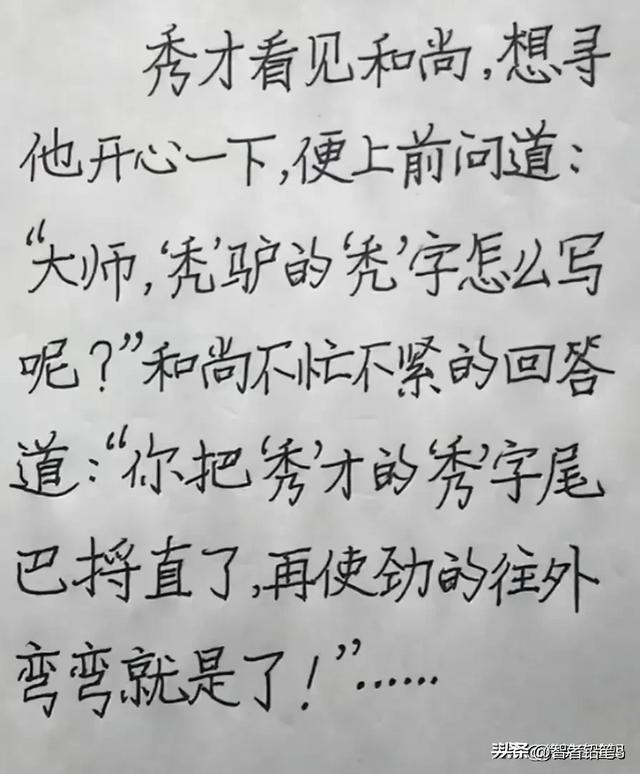 秀才看见和尚,想寻
他开心一下,便上前问道:
“大师,‘秃’驴的‘秃’字怎么写
呢?”和尚不忙不紧的回答
道:“你把‘秀’才的‘秀’字尾
巴捋直了,再使劲的往外
弯弯就是了!”……
头条@智者铅笔B